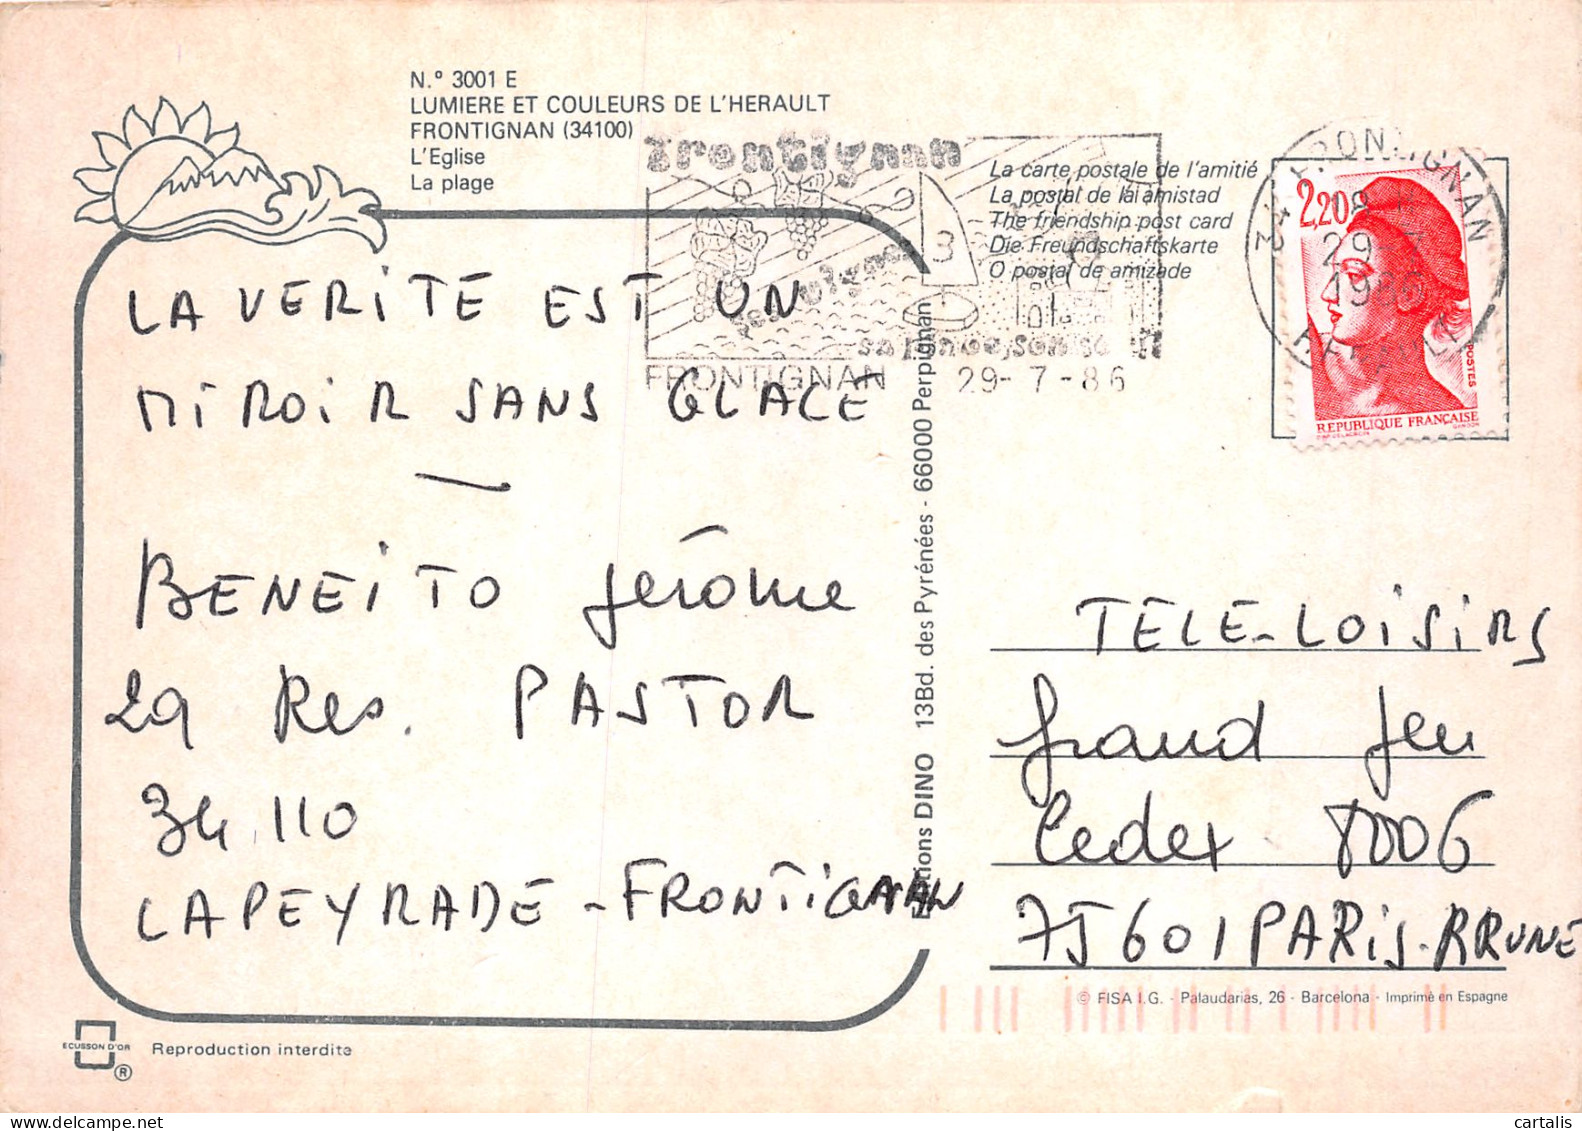 N.º 3001 E
LUMIERE ET COULEURS DE L'HERAULT
FRONTIGNAN (34100)
L'Eglise
La plage
frontignan
sa plage, son
FRONTIGNAN 29-7-86
La carte postale de l'amitié
La postal de la amistad
The friendship post card
Die Freundschaftskarte
O postal de amizade
34 FRONTIGNAN
29-7
1986
HERAULT
2,20
POSTES
REPUBLIQUE FRANÇAISE
LA VERITE EST UN
MIROIR SANS GLACE
BENEITO Jérôme
29 Res. PASTOR
34 110
LAPEYRADE - FRONTIGNAN
Editions DINO 13Bd. des Pyrénées - 66000 Perpignan
TELE-LOISIRS
Grand Jeu
Cedex 8006
75601 PARIS-BRUNE
© FISA I.G. - Palaudarias, 26 - Barcelona - Imprimé en Espagne
ECUSSON D'OR
®
Reproduction interdite
cartalis